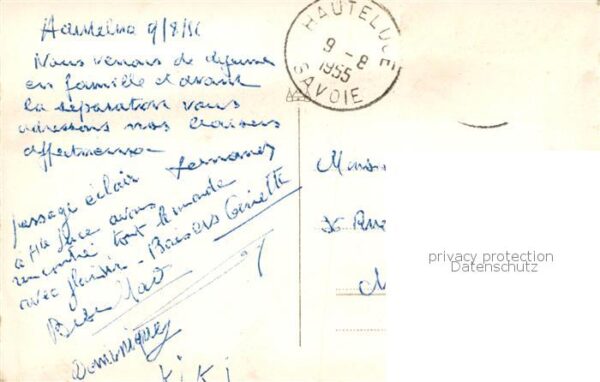 Hauteluce 9/8/55
Nous venons de dejeuner
en famille et avant
la séparation vous
adressons nos baisers
affectueux
Fernand
passage éclair
a Hte Luce avons
rencontré tout le monde
avec plaisir - Baisers Ginette
Dominique
Kiki
HAUTELUCE
9 - 8
1955
SAVOIE
Monsie
36 Rue
privacy protection
Datenschutz